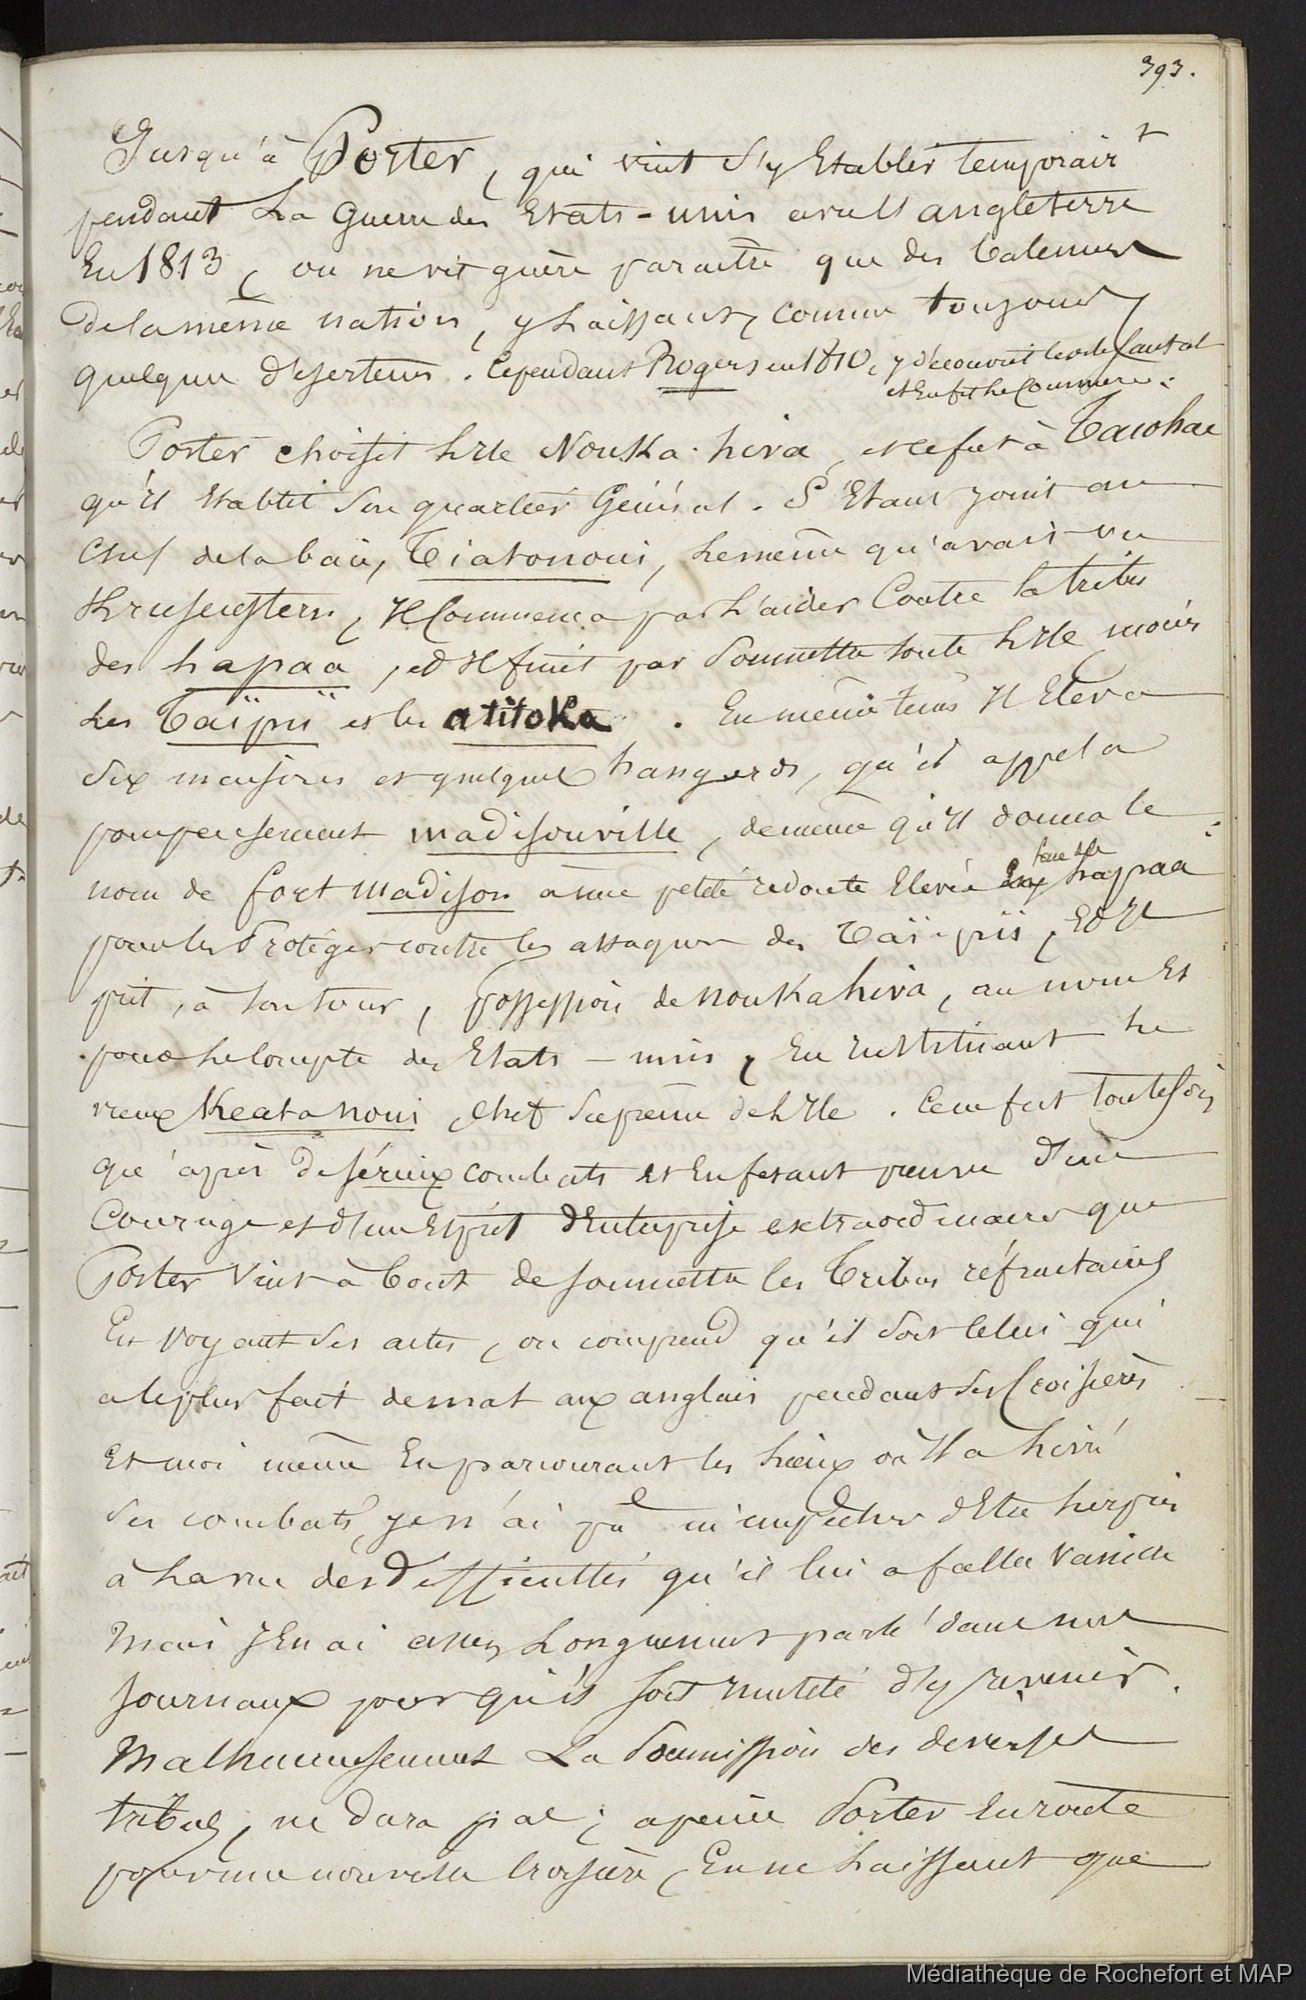 393.
Jusqu'à Porter, qui vint s'y Etablir temporairt
pendant La Guerre des Etats-unis avec l'angleterre
En 1813, on ne vit guère paraître que des baleniers
de la même nation, y Laissant, comme toujours,
quelques déserteurs. Cependant Rogers en 1810, y découvrit le bois de santal
et en fit le Commerce.
Porter choisit L'Ile Nouka-hiva, et ce fut à Taiohae
qu'il établit son quartier Général. S'Etant joint au
Chef de la baie, Tiatonoui, le même qu'avait vu
Krusenstern, Il Commença par L'aider Contre la tribu
des hapaa, et Il finit par soumettre toute L'Ile moins
Les Taïpii et les atitoka. En même tems Il Eleva
Six maisons et quelques hangards, qu'il appela
pompeusement madisonville, de même qu'Il donna le
nom de fort madison à une petite redoute Elevée Chez hapaa
pour les Protéger contre les attaques des Taï-pii, Et Il
prit, à son tour, possession de nouka hiva, au nom Et
pour le Compte des Etats-unis, En instituant Le
vieux Keatanoui Chef suprême de L'Ile. Ce ne fut toutefois
qu'après de sérieux combats et En fesant preuve d'un
Courage et d'un Esprit d'Entreprise extraordinaires que
Porter Vint à bout de soumettre les Tribus réfractaires
En voyant ses actes, on comprend qu'il soit Celui qui
a le plus fait de mal aux anglais pendant ses Croisières
Et moi même En parcourant les Lieux où Il a Livré
ses combats, je n'ai pu m'empêcher d'Etre surpris
à La vue des difficultés qu'il lui a fallu Vaincre
Mais J'En ai assez Longuement parlé dans mes
Journaux pour qu'il soit inutile d'y revenir.
Malheureusement La Soumission des diverses
tribus, ne dura pas; a peine Porter En route
pour une nouvelle Croisière, En ne Laissant que
Médiathèque de Rochefort et MAP